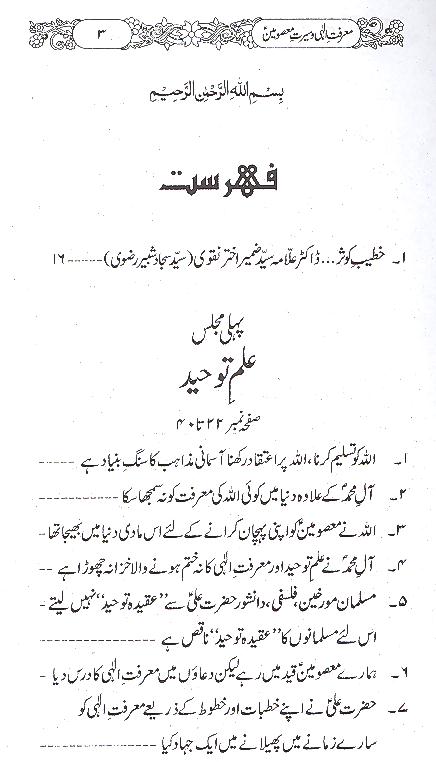 معرفتِ الٰہی و سیرتِ معصومینؑ ۳
بِسْمِ اللهِ الرَّحْمٰنِ الرَّحِیْمِ
فہرست
۱۔ خطیبِ کوثر... ڈاکٹر علّامہ سیّد ضمیر اختر نقوی (سیّد سجاد شبیر رضوی) ------ ۱۶
پہلی مجلس
علمِ توحید
صفحہ نمبر ۲۲ تا ۴۰
۱۔ اللہ کو تسلیم کرنا، اللہ پر اعتقاد رکھنا آسمانی مذاہب کا سنگِ بنیاد ہے ------
۲۔ آلِ محمدؐ کے علاوہ دنیا میں کوئی اللہ کی معرفت کو نہ سمجھا سکا ------
۳۔ اللہ نے معصومینؑ کو اپنی پہچان کرانے کے لئے اس مادی دنیا میں بھیجا تھا -
۴۔ آلِ محمدؐ نے علمِ توحید اور معرفتِ الٰہی کا نہ ختم ہونے والا خزانہ چھوڑا ہے --
۵۔ مسلمان مورخین، فلسفی، دانشور حضرت علیؑ سے ”عقیدہ توحید“ نہیں لیتے -
اس لئے مسلمانوں کا ”عقیدہ توحید“ ناقص ہے ---------------
۶۔ ہمارے معصومینؑ قید میں رہے لیکن دعاؤں میں معرفتِ الٰہی کا درس دیا -
۷۔ حضرت علیؑ نے اپنے خطبات اور خطوط کے ذریعے معرفتِ الٰہی کو
سارے زمانے میں پھیلانے میں ایک جہاد کیا ---------------